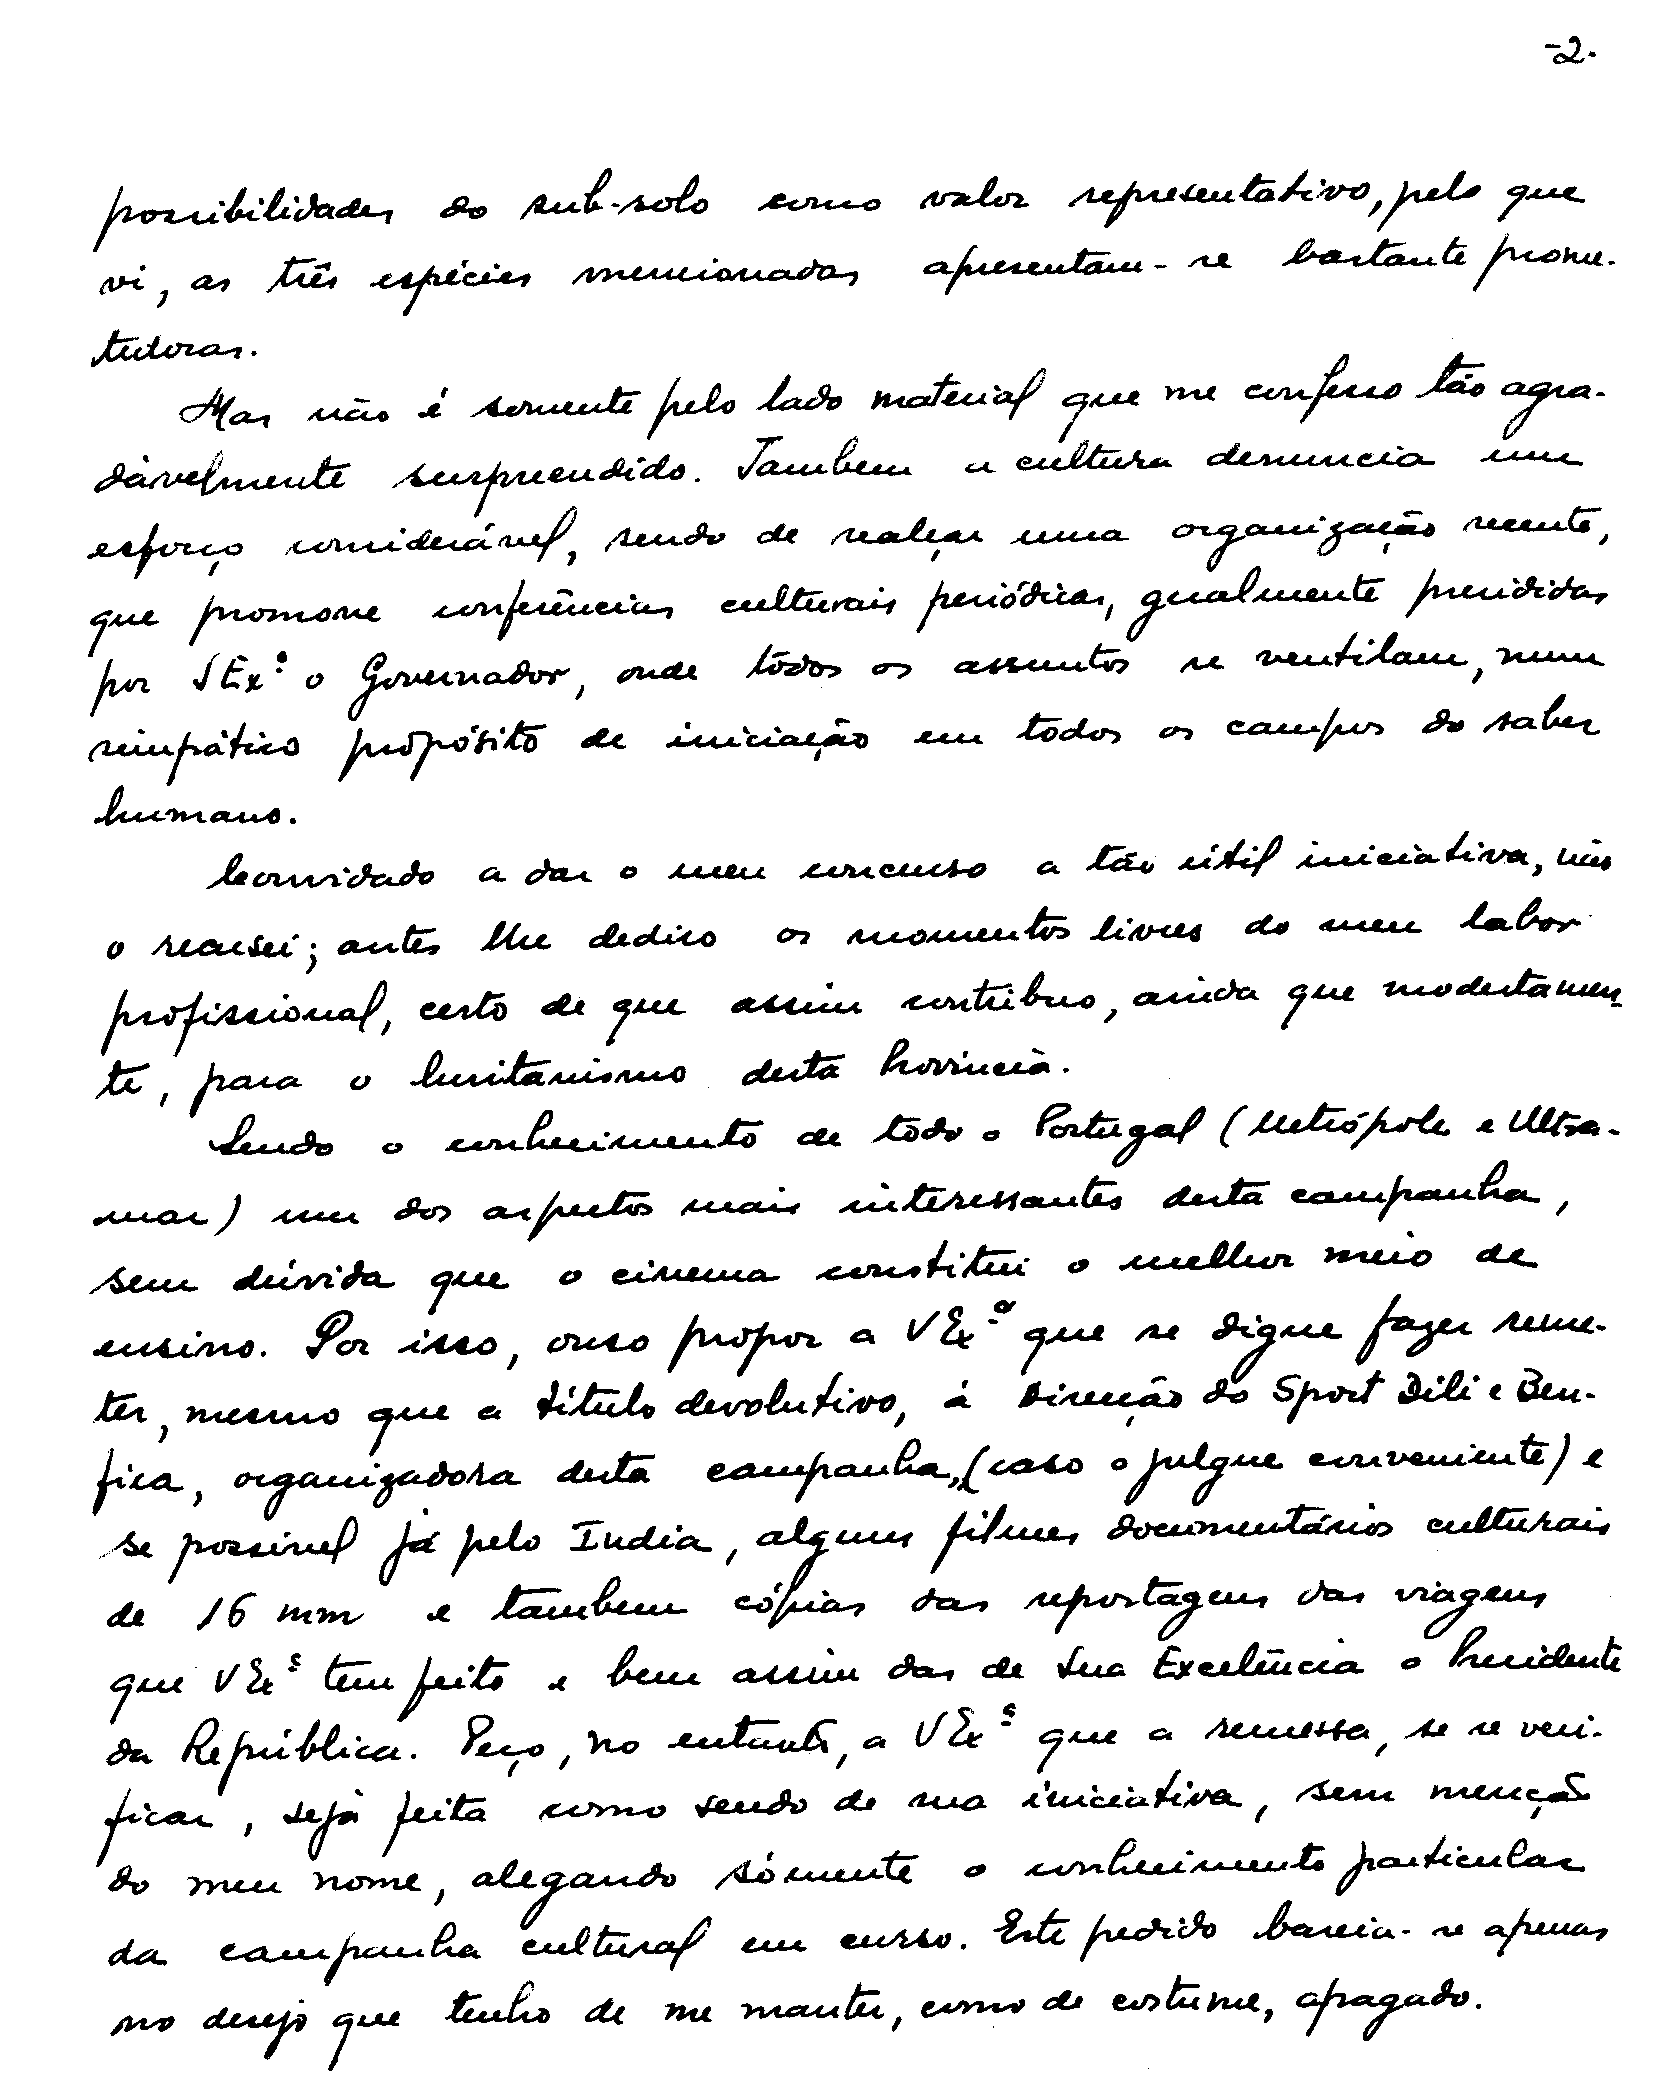 -2.
possibilidades do sub-solo como valor representativo, pelo que
vi, as três espécies mencionadas apresentam-se bastante prome-
tedoras.
Mas não é somente pelo lado material que me confesso tão agra-
dàvelmente surpreendido. Tambem a cultura denuncia um
esforço considerável, sendo de realçar uma organização recente,
que promove conferências culturais periódicas, gualmente presididas
por SExª o Governador, onde todos os assuntos se ventilam, num
simpático propósito de iniciação em todos os campos do saber
humano.
Convidado a dar o meu concurso a tão útil iniciativa, não
o recusei; antes lhe dedico os momentos livres do meu labor
profissional, certo de que assim contribuo, ainda que modestamen-
te, para o lusitanismo desta Província.
Sendo o conhecimento de todo o Portugal (Metrópole e Ultra-
mar) um dos aspectos mais interessantes desta campanha,
sem dúvida que o cinema constitui o melhor meio de
ensino. Por isso, ouso propor a VExª que se digne fazer reme-
ter, mesmo que a título devolutivo, á Direcção do Sport Dili e Ben-
fica, organizadora desta campanha, (caso o julgue conveniente) e
se possivel já pelo India, alguns filmes documentários culturais
de 16 mm e tambem cópias das reportagens das viagens
que VExª tem feito e bem assim das de Sua Excelência o Presidente
da República. Peço, no entanto, a VExª que a remessa, se se veri-
ficar, seja feita como sendo de sua iniciativa, sem menção
do meu nome, alegando sómente o conhecimento particular
da campanha cultural em curso. Este pedido baseia-se apenas
no desejo que tenho de me manter, como de costume, apagado.